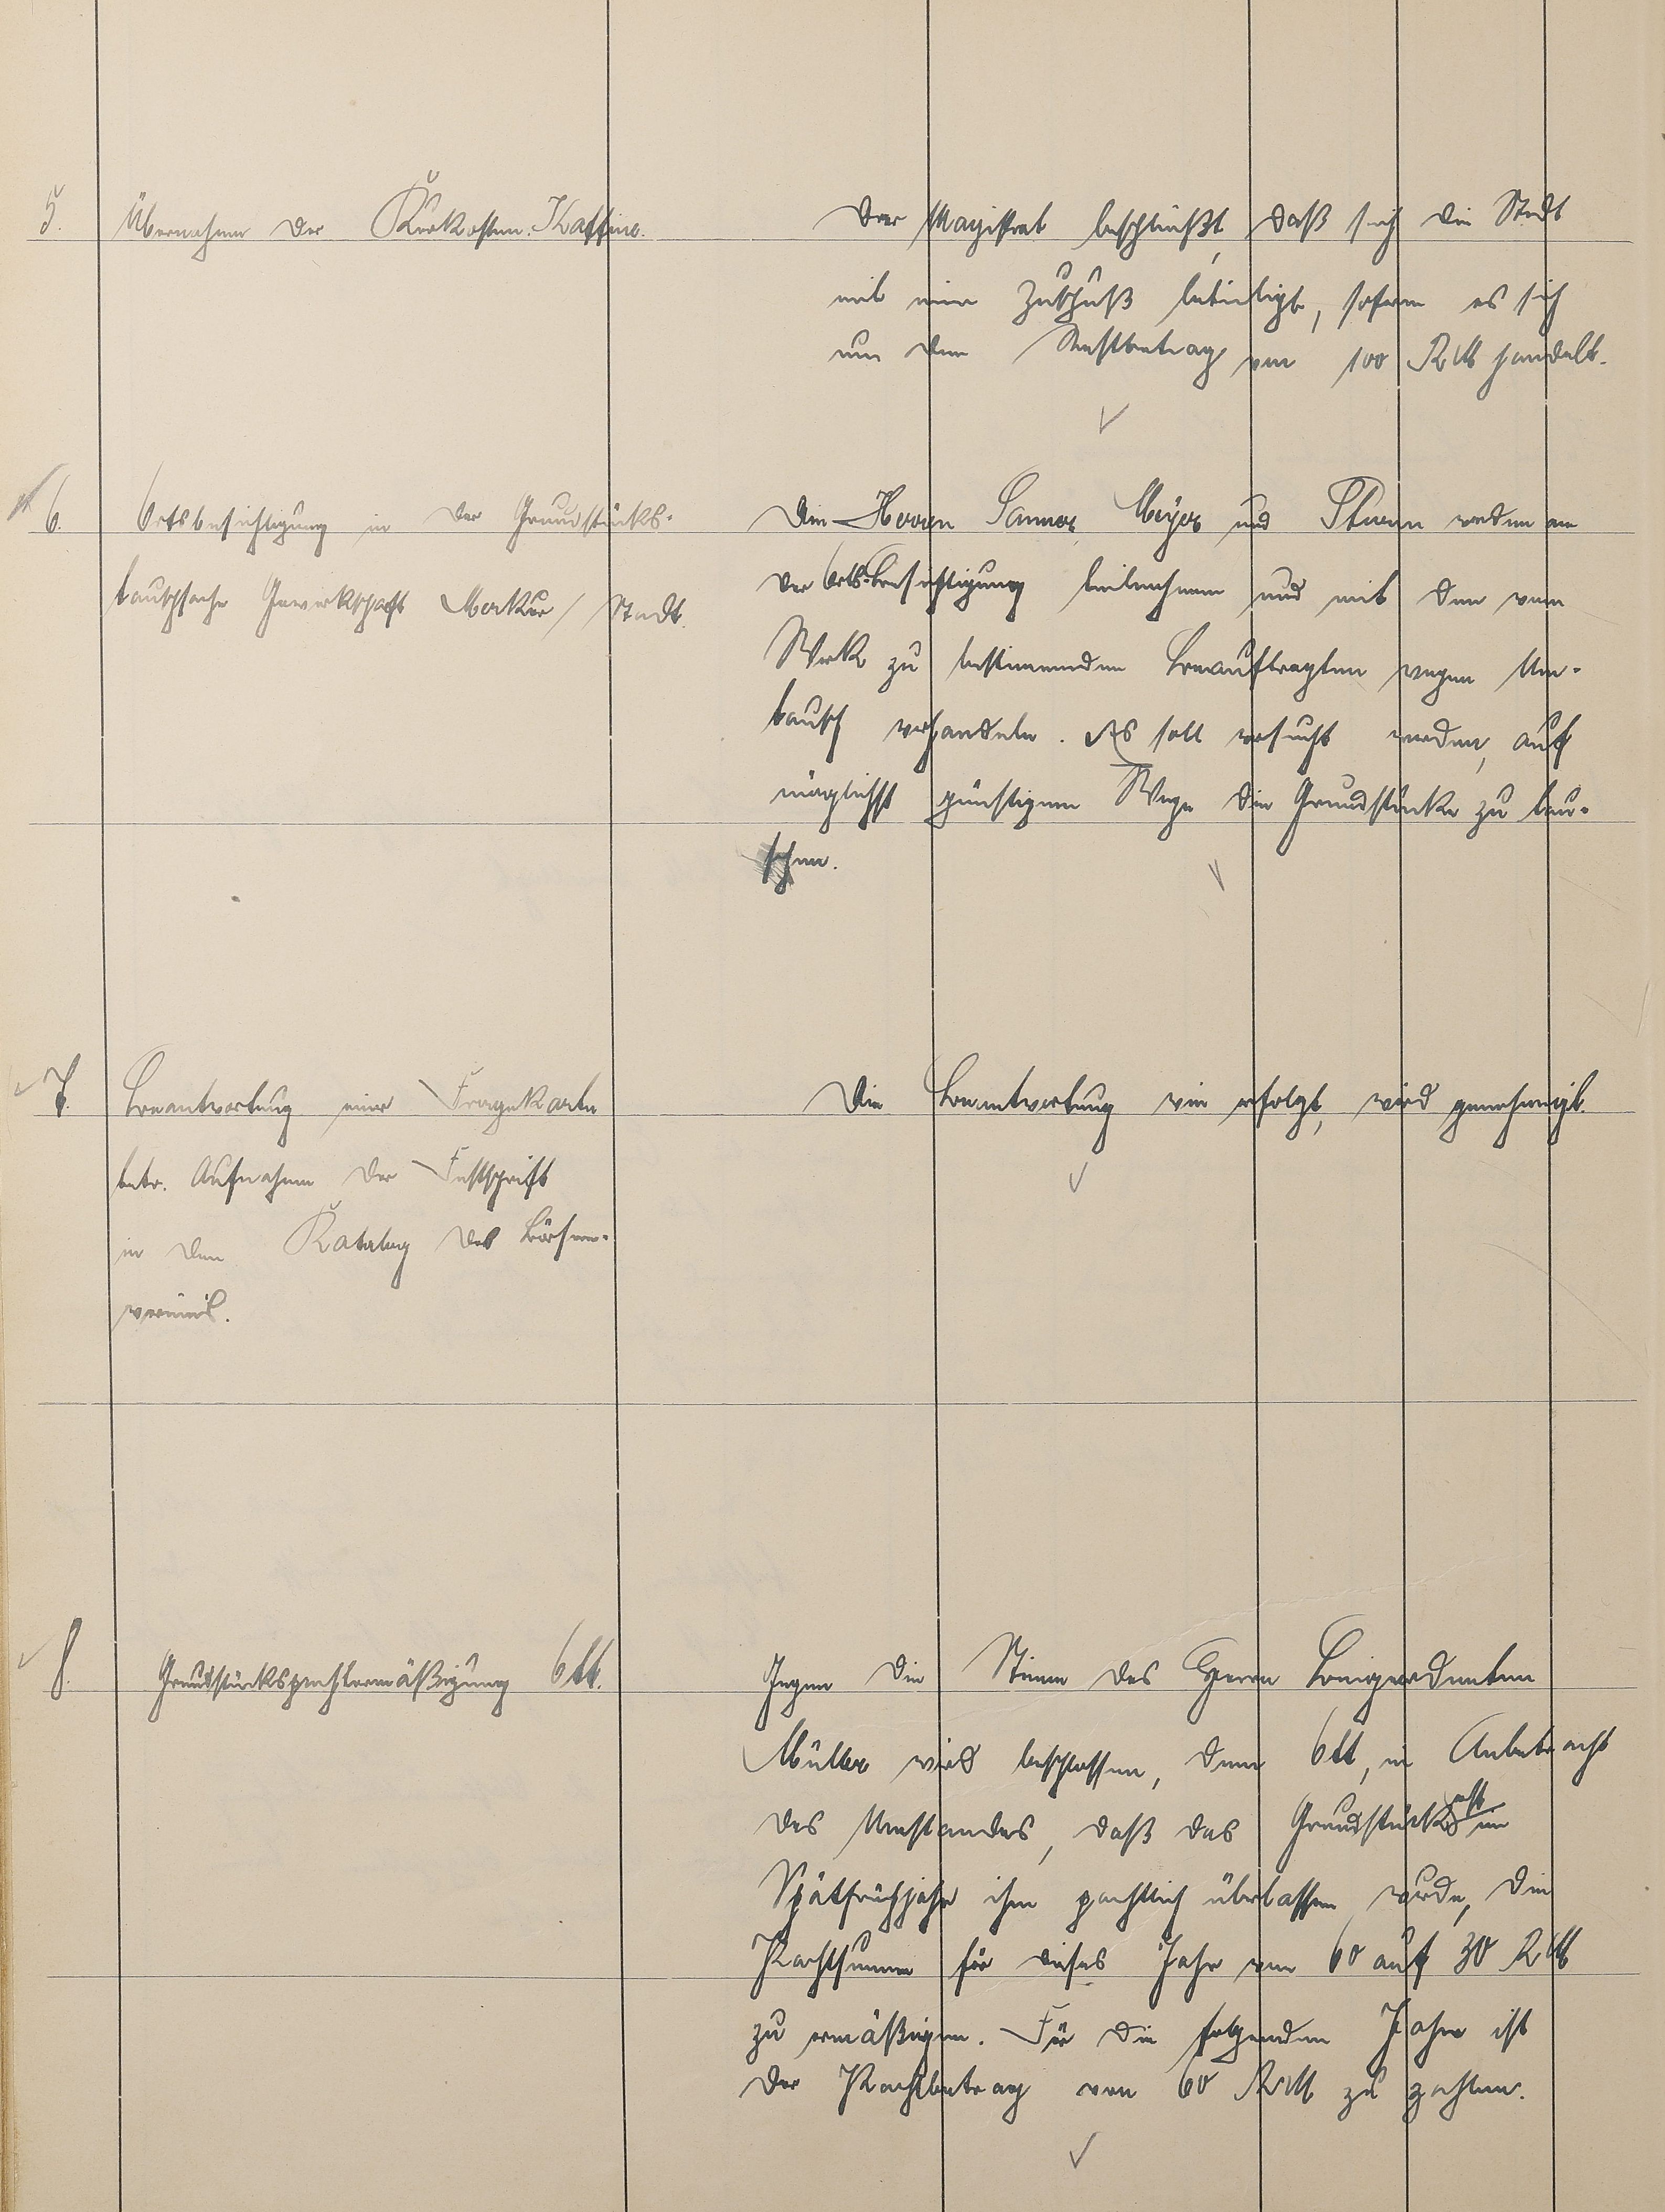 5.
Übernahme der Kurkosten Kaffine.
Der Magistrat beschließt, daß sich die Stadt
mit einem Zuschuß beteiligt, sofern es sich
um den Restbetrag von 100 RM handelt.
6.
Ortsbesichtigung in der Grundstücks-
tauschsache Gewerkschaft Merkur / Stadt.
Die Herren Sanner, Meyer und Sturm werden an
der Orts-Besichtigung teilnehmen und mit den vom
Werk zu bestimmenden Beauftragten wegen Um-
tausch verhandeln. Es soll versucht werden, auf
möglichst günstigem Wege die Grundstücke zu tau-
schen.
7.
Beantwortung einer Fragekarte
betr. Aufnahme der Festschrift
in den Katalog des Börsen-
vereins.
Die Beantwortung wie erfolgt, wird genehmigt.
8.
Grundstückspachtermäßigung Ott.
Gegen die Stimme des Herrn Beigeordneten
Müller wird beschlossen, dem Ott, in Anbetracht
des Umstandes, daß das Grundstück erst im
Spätfrühjahr ihm pachtlich überlassen wurde, die
Pachtsumme für dieses Jahr von 60 auf 30 RM
zu ermäßigen. Für die folgenden Jahre ist
der Pachtbetrag von 60 RM zu zahlen.